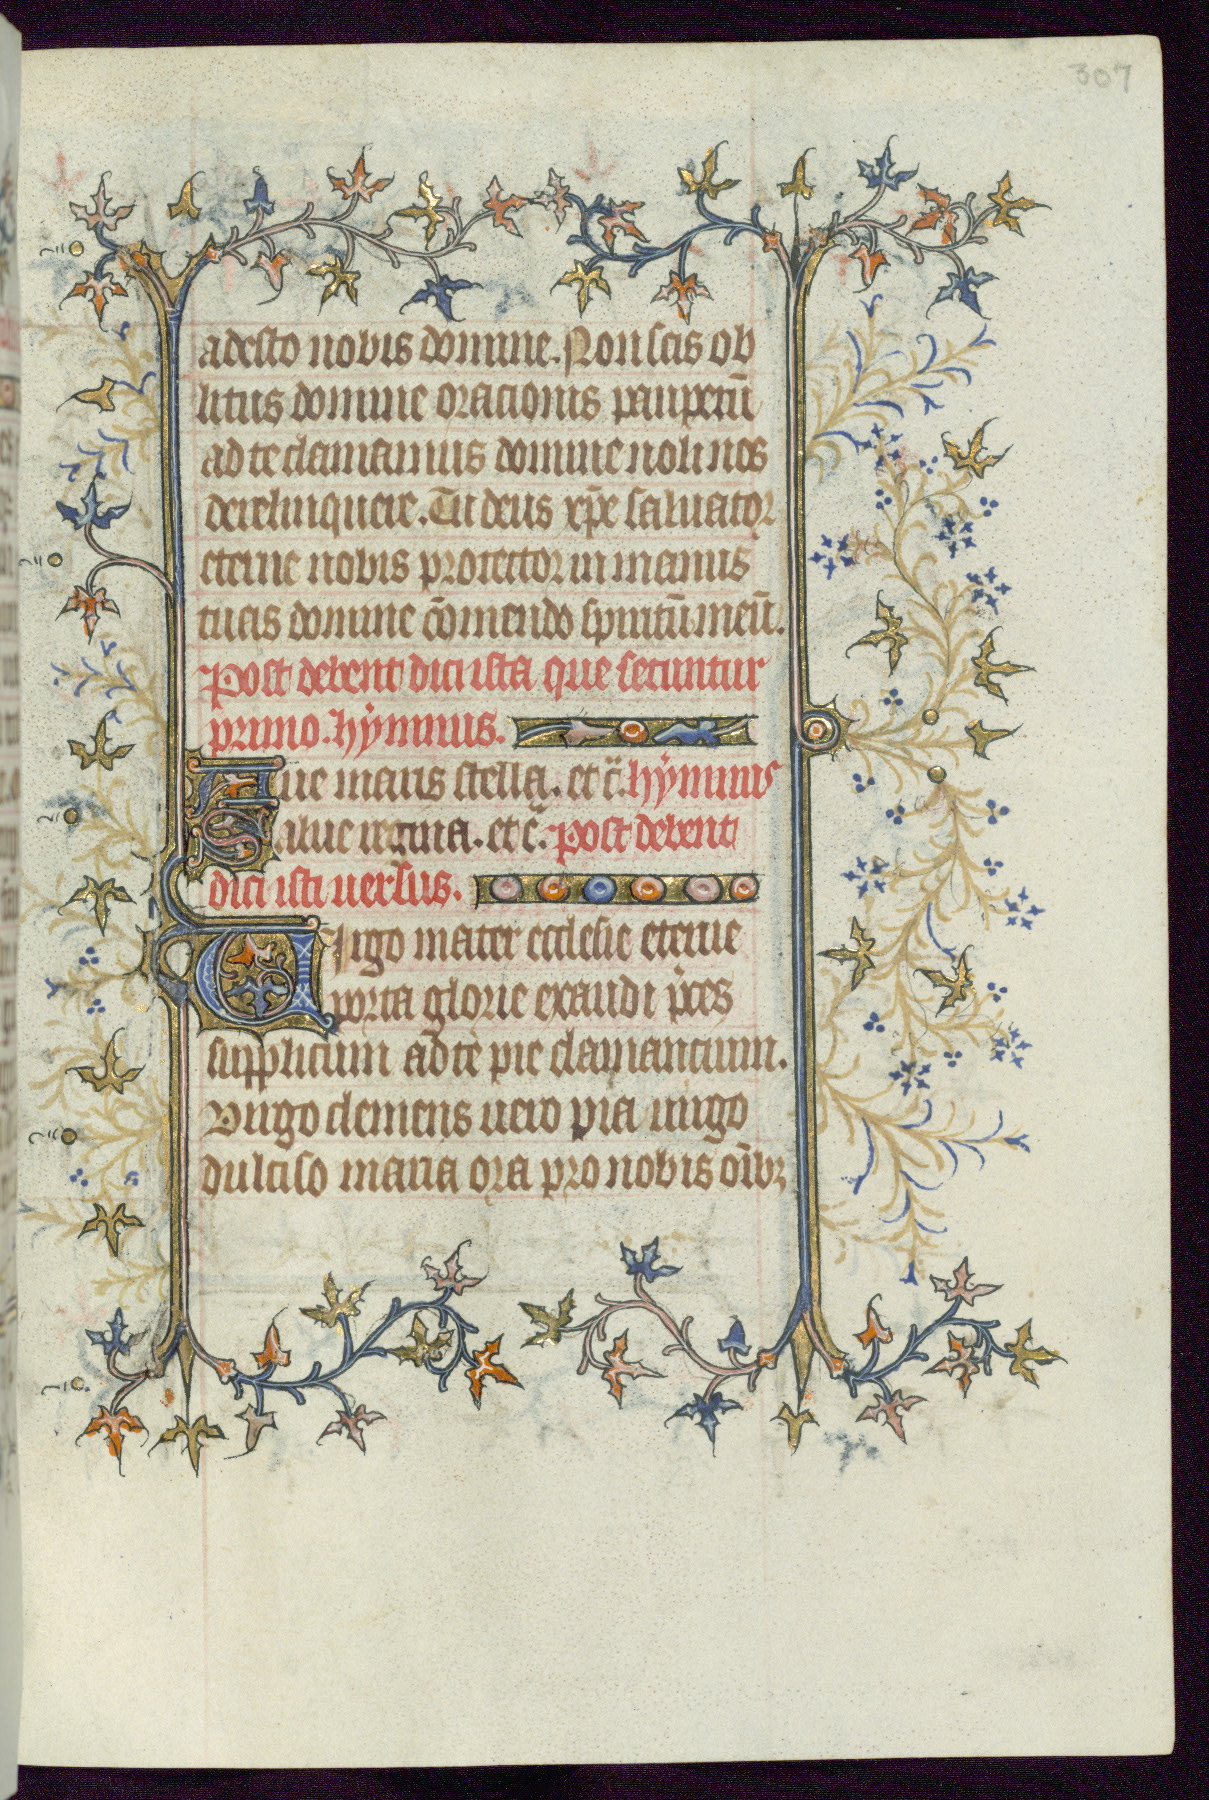 307
adesto nobis domine. Non scis ob
litus domine oracionis paupetū
ad te clamamus domine noli nos
derelinquere. Tu deus xp̄e saluator
eterne nobis protector in manus
tuas domine cōmendo spiritū meū.
Post debent dici ista que secuntur
primo. hẏmnus.
Aue maris stella. et c̄. hẏmnus
Salue regina. et c̄. Post debent
dici isti uersus.
Uirgo mater ecclesie eterne
porta glorie exaudi p̄ces
supplicum ad te pie clamancium.
Virgo clemens uero pia uirgo
dulciso maria ora pro nobis oībꝫ